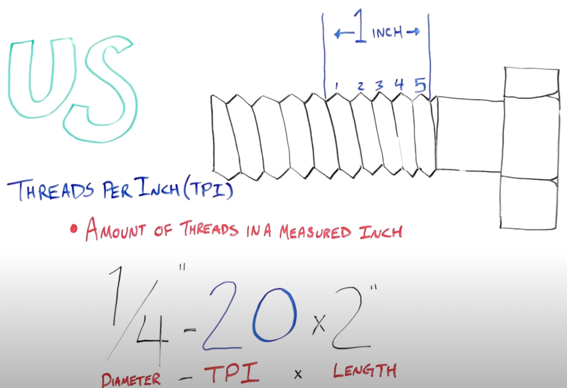 US
1 INCH
1 2 3 4 5
THREADS PER INCH (TPI)
• AMOUNT OF THREADS IN A MEASURED INCH
1/4" - 20 x 2"
DIAMETER - TPI x LENGTH